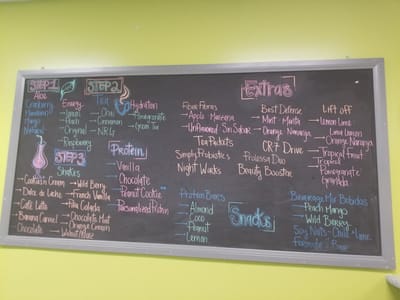 STEP 1
Aloe
Cranberry
Mandarin
Mango
Natural
Energy
Peach
Original
Raspberry
STEP 2
Tea
Chai
Cinnamon
N-R-G
Hydration
Pomegranate
Green Tea
STEP 3
Shakes
Cookies n Cream
Dulce de Leche
Café Latte
Banana Caramel
Chocolate
Wild Berry
French Vanilla
Piña Colada
Chocolate Mint
Orange Cream
Protein
Vanilla
Chocolate
Peanut Cookie
Personalized Protein
Extras
Fiber
Apple
Unflavored
Tea Packets
Simply Probiotics
Night Works
Best Defense
Orange Naranja
CR7 Drive
Prolessa Duo
Beauty Booster
Lift off
Lemon Lima
Orange Naranja
Tropical Fruit
Tropical
Pomegranate
Granada
Snacks
Protein Bars
Almond
Coco
Peanut
Lemon
Beverage Mix Bebidas
Peach Mango
Wild Berry
Soy Nuts - Chili + Lime
Formula 1 Bar